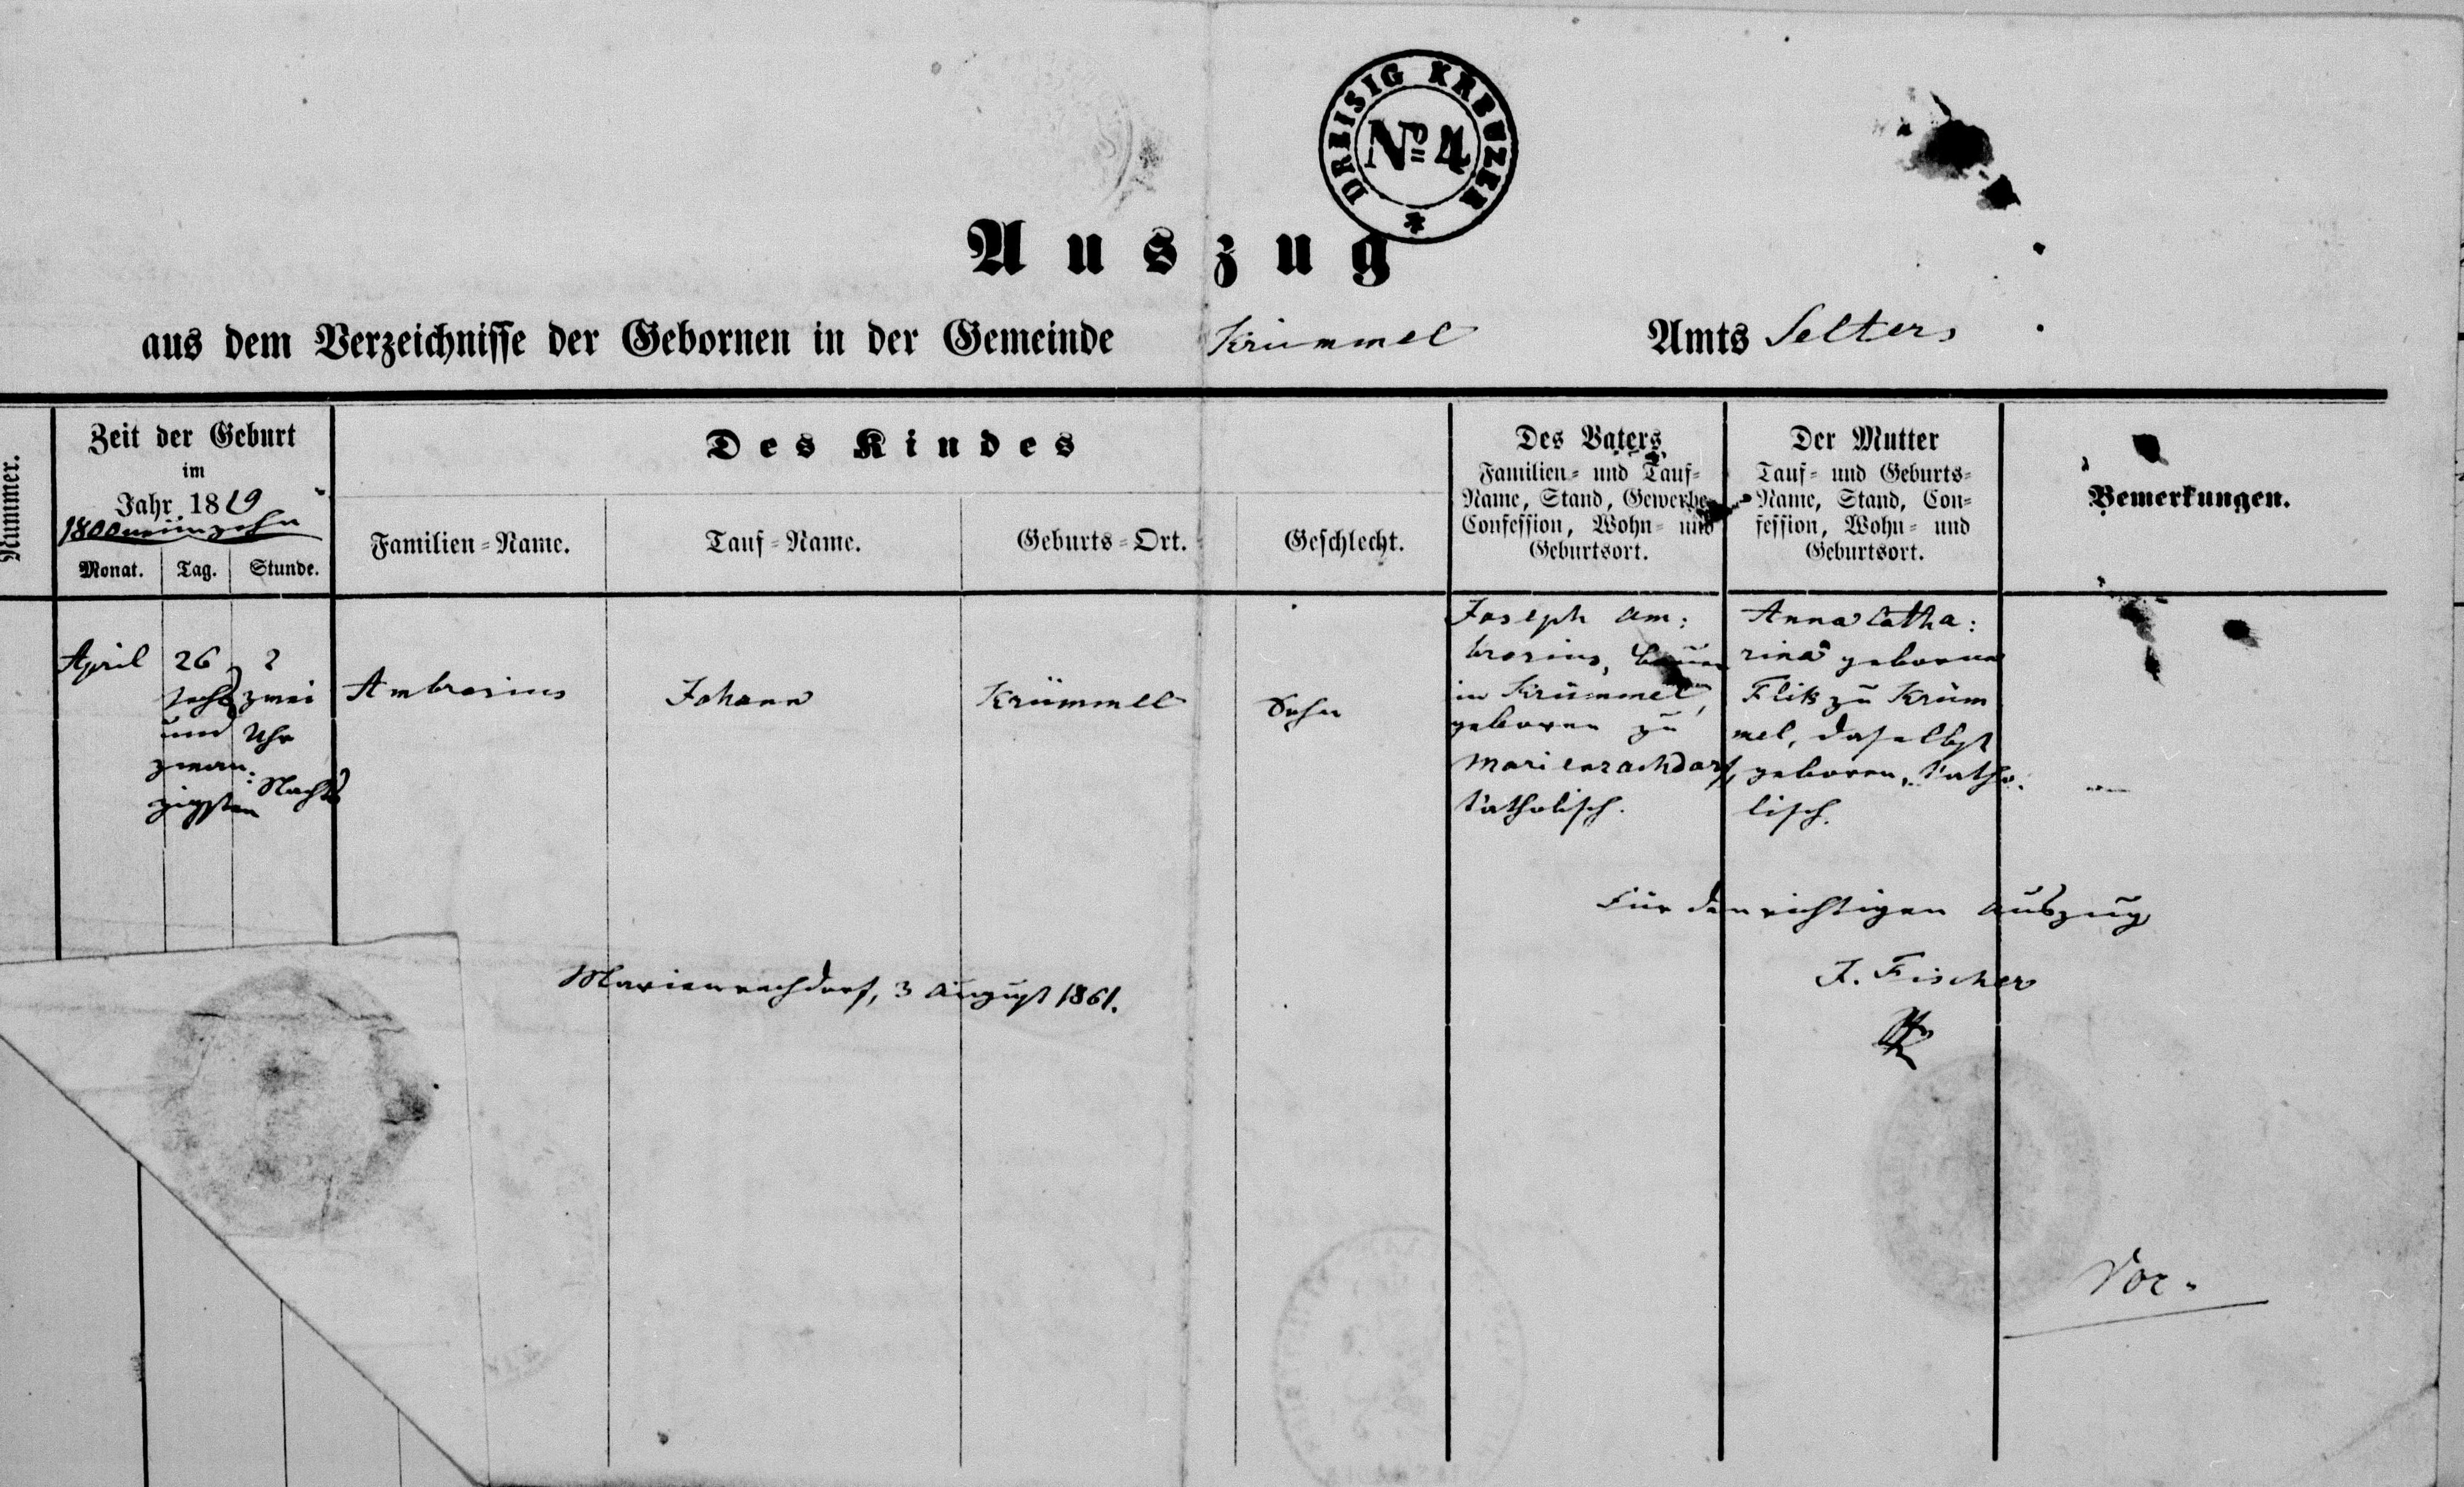 DREISIG KREUZER
Nº 4
*
Auszug
aus dem Verzeichnisse der Gebornen in der Gemeinde Krümmel Amts Selters
Nummer.
Zeit der Geburt
im
Jahr 1819
1800 neünzehn
Monat.
Tag.
Stunde.
Des Kindes
Familien-Name.
Tauf-Name.
Geburts-Ort.
Geschlecht.
Des Vaters
Familien- und Tauf-
Name, Stand, Gewerbe
Confession, Wohn- und
Geburtsort.
Der Mutter
Tauf- und Geburts-
Name, Stand, Con-
fession, Wohn- und
Geburtsort.
Bemerkungen.
April
26
sechs
und
zwan:
zigsten
2
zwei
Uhr
Nachts
Ambrosius
Johann
Krümmel
Sohn
Joseph Am:
brosius, Bauer
in Krümmel,
geboren zu
Marienrachdorf,
katholisch.
Anna Catha:
rina geborne
Flik zu Krüm
mel, daselbst
geboren, katho:
lisch.
Für den richtigen Auszug
Marienrachdorf, 3 August 1861.
J. Fischer